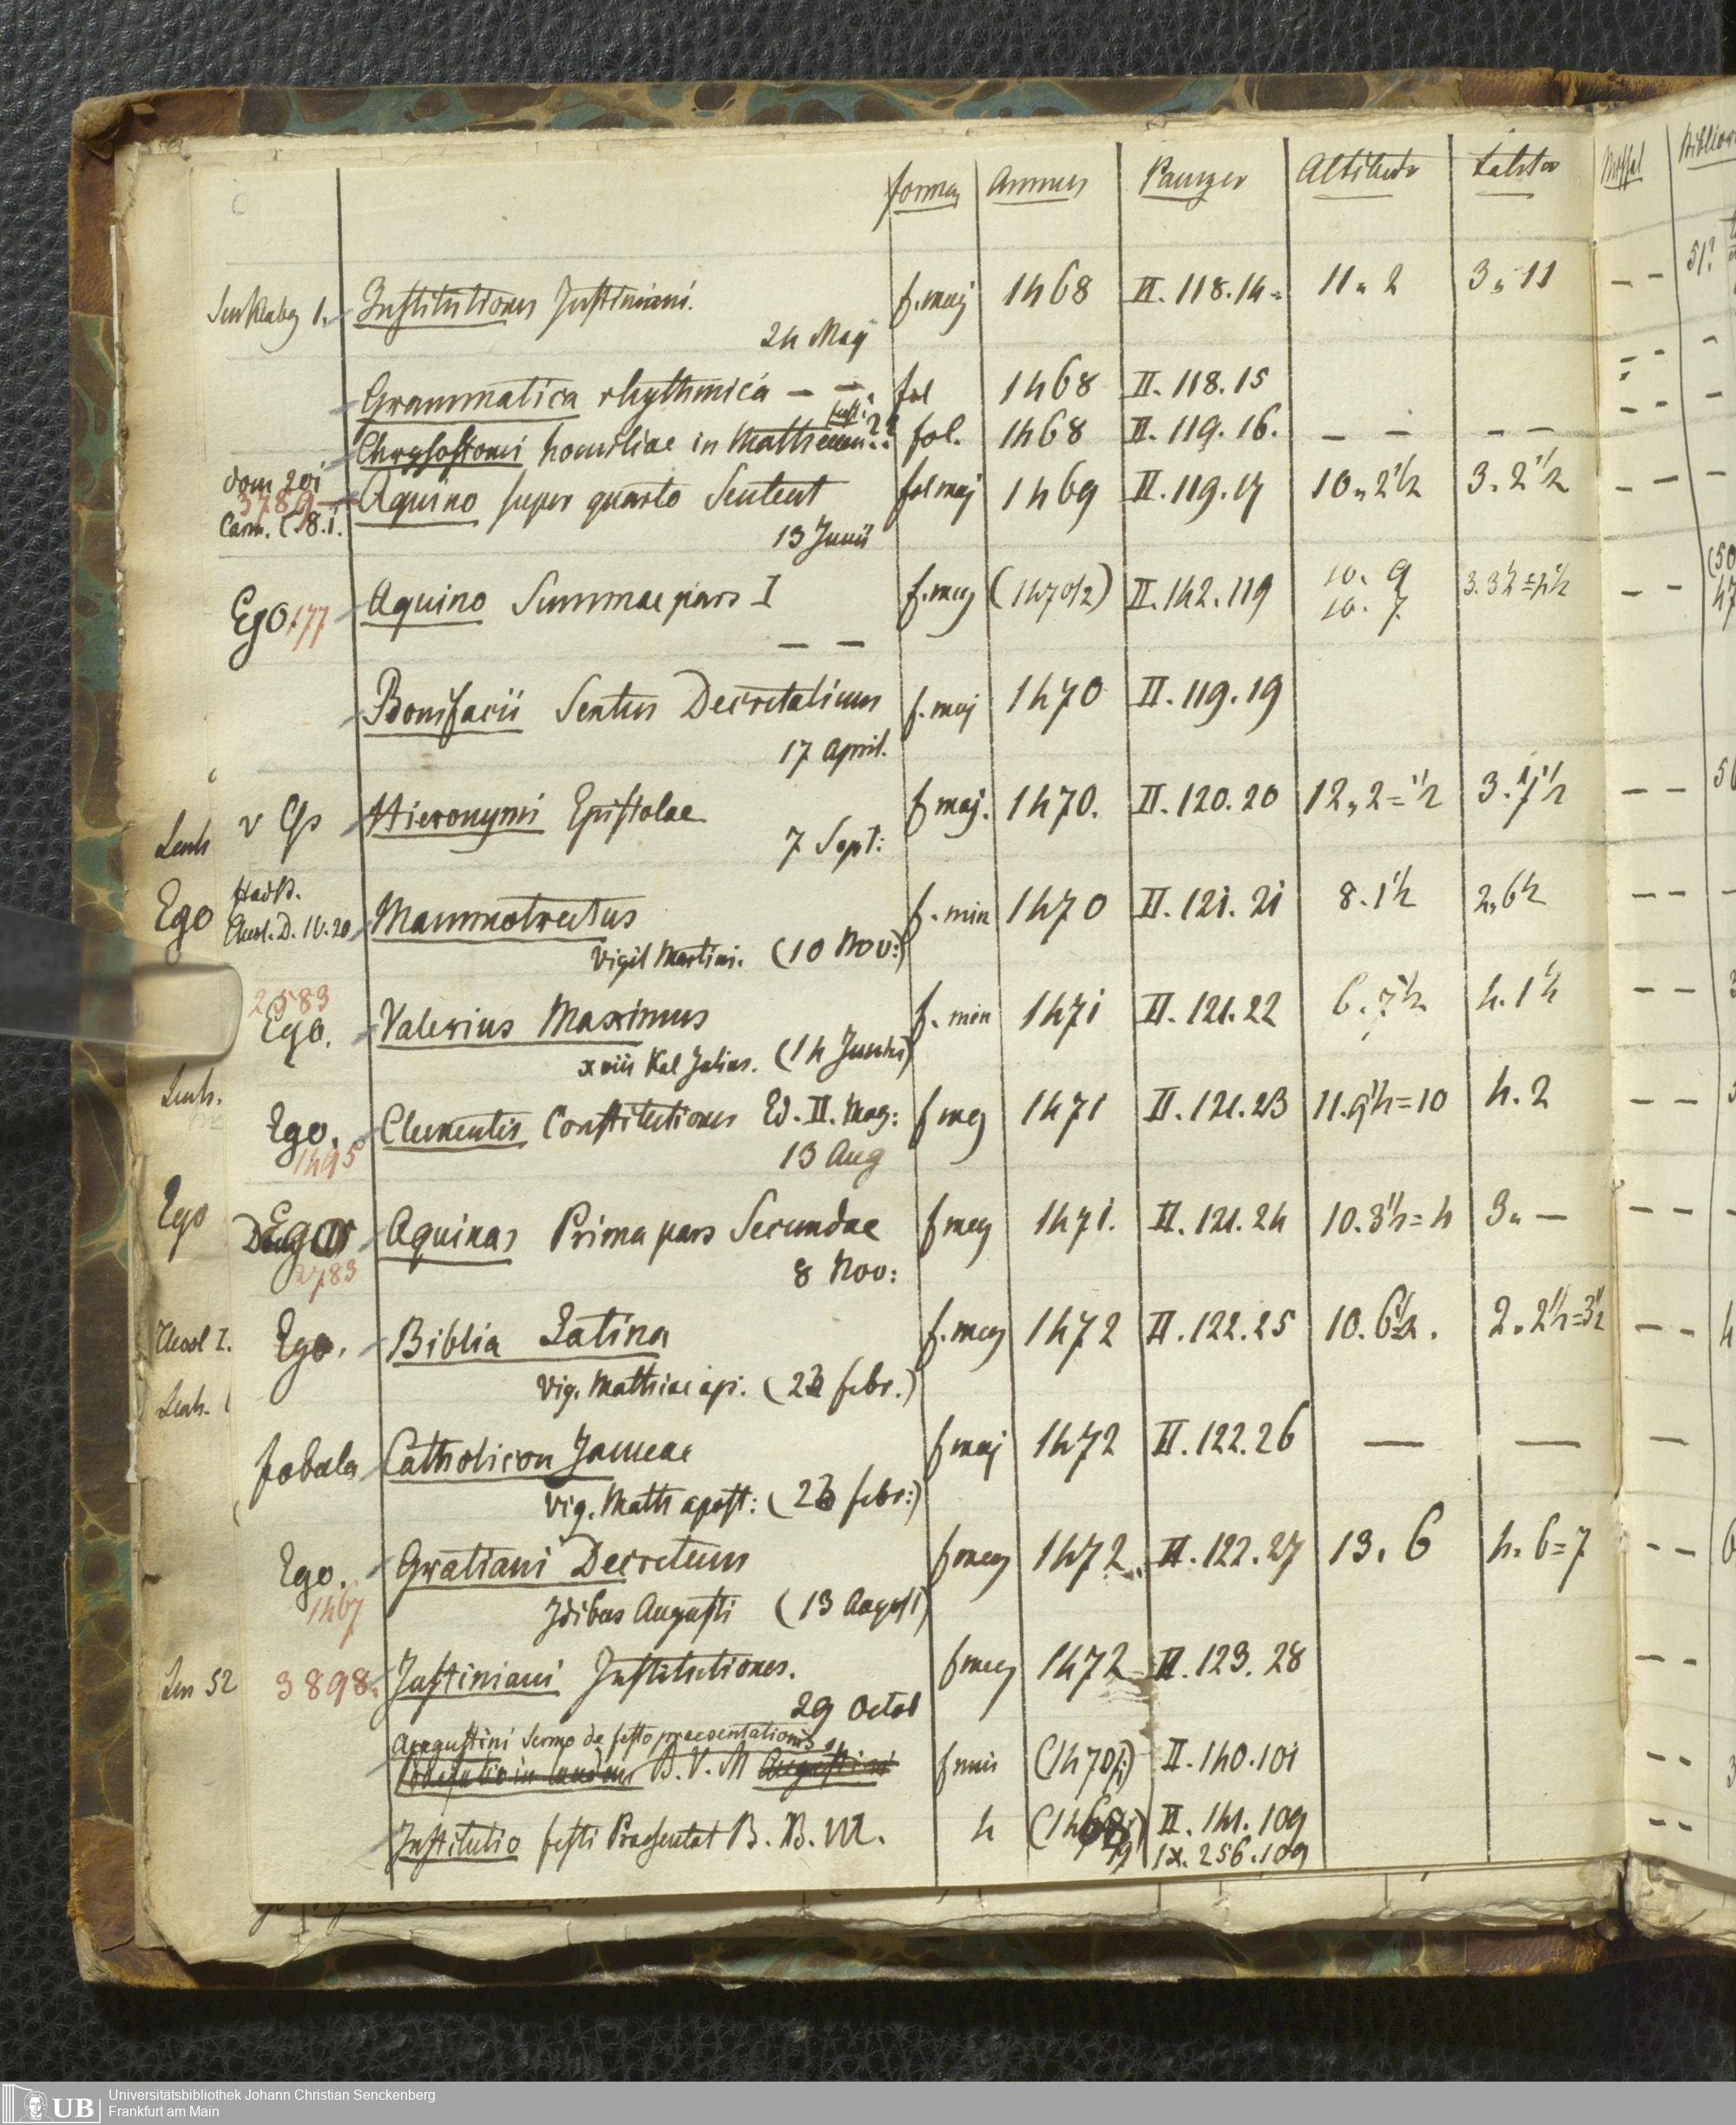 forma Annus Panzer Altitudo Latitudo
Senkabg 1. Institutiones Justiniani. f. maj 1468 II. 118. 14 11 " 2 3 " 11 - -
24 Maij
Grammatica rhythmica - - fol 1468 II. 118. 15
Chrysostomi homiliae in Matthaeum fol. 1468 II. 119. 16. - - - -
dom 20i
3789
Aquino super quarto Sentent fol maj 1469 II. 119. 17 10 " 2 1/2 3. 2 1/2 - -
13 Junii
Ego 177 Aquino Summae pars I f. maj (1470/2) II. 142. 119 10. 9 3. 3 1/2 = 4 1/2 - -
- - 10. 7
Bonifacii Sextus Decretalium f. maj 1470 II. 119. 19
17 April.
v Gs Hieronymi Epistolae f maj. 1470. II. 120. 20 12 " 2 = 1/2 3. 7 1/2 - -
7 Sept:
Ego D. IV. 20 Mammotrectus f. min 1470 II. 121. 21 8. 1 1/2 2 " 6 1/2 - -
Vigil Martini. (10 Nov:)
2583
Ego. Valerius Maximus f. min 1471 II. 121. 22 6. 7 1/2 4. 1 1/2 - -
xviii Kal Julias. (14 Junii)
Ego. Clementis Constitutiones Ed. II. Mog: f maj 1471 II. 121. 23 11. 9 1/2 = 10 4. 2 - -
1495 13 Aug
Ego Aquinas Prima pars Secundae f maj 1471. II. 121. 24 10. 3 1/2 = 4 3 " - - -
2783 8 Nov:
Ego. Biblia Latina f. maj 1472 II. 122. 25 10. 6 1/2. 2. 2 1/2 = 3 1/2 - -
Vig. Mathiae ap. (23 febr.)
fabula Catholicon Januae f maj 1472 II. 122. 26 — — -
Vig. Math apost: (23 febr:)
Ego. Gratiani Decretum f maj 1472. II. 122. 27 13. 6 4. 6 = 7 - -
1467 Idibus Augusti (13 August)
Len 52 3898. Justiniani Institutiones. f maj 1472 II. 123. 28 - -
29 Octob
Augustini Sermo de festo praesentationis
B. V. M Augustini f min (1470) II. 140. 101 - -
Institutio festi Praesentat B. B. M. 4 II. 141. 109 - -
IX. 256. 109
UB Universitätsbibliothek Johann Christian Senckenberg
Frankfurt am Main